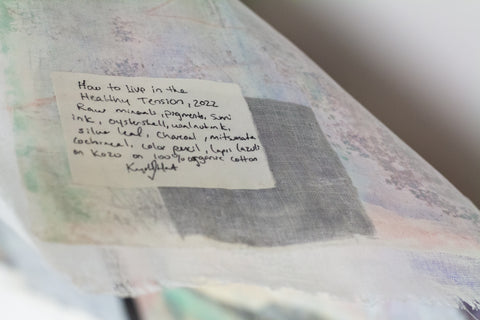 How to Live in the
Healthy Tension, 2022
Raw minerals, pigments, Sumi
ink, oystershell, walnut ink,
silver leaf, charcoal, mitsumata
cochineal, color pencil, lapis lazuli
on Kozo on 100% organic cotton